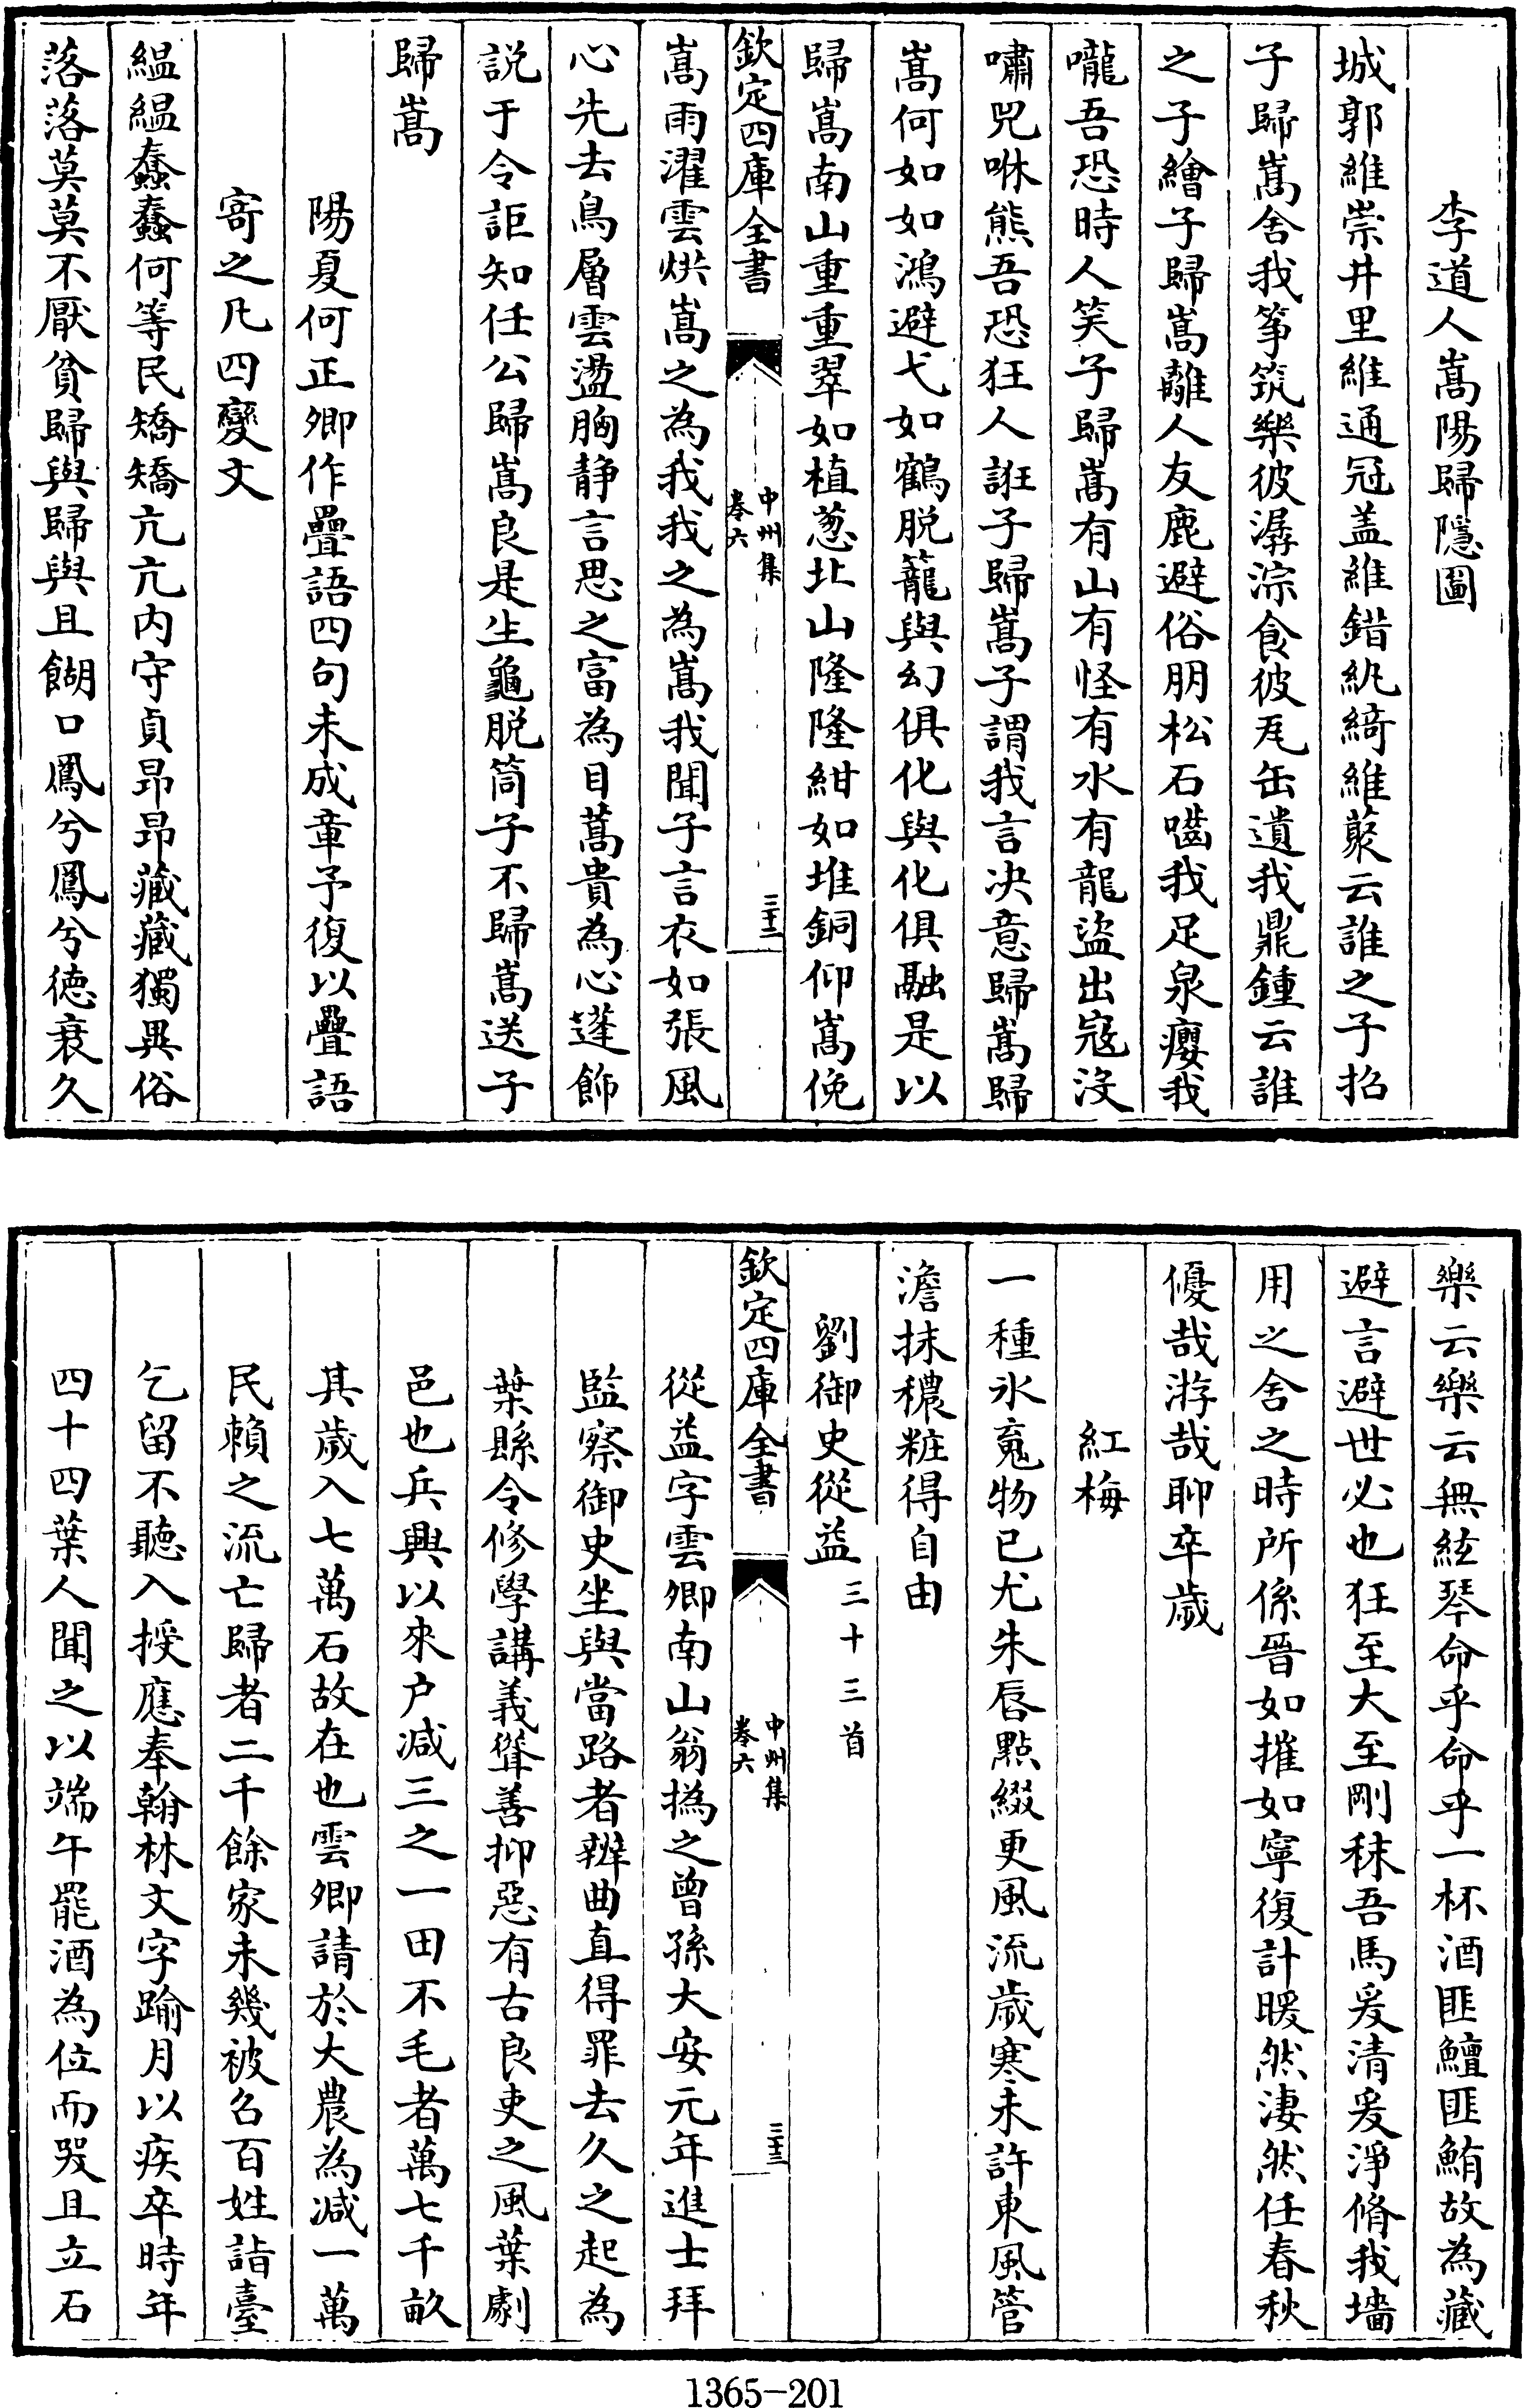 李道人嵩陽歸隱圖
城郭維崇井里維通冠盖維錯紈綺維藂云誰之子招
子歸嵩舍我筝筑樂彼潺淙食彼瓦缶遺我鼎鍾云誰
之子繪子歸嵩離人友鹿避俗朋松石嚙我足泉癭我
嚨吾恐時人笑子歸嵩有山有怪有水有龍盜出寇沒
嘯兕咻熊吾恐狂人誑子歸嵩子謂我言决意歸嵩歸
嵩何如如鴻避弋如鶴脱籠與幻俱化與化俱融是以
歸嵩南山重重翠如植葱北山隆隆紺如堆銅仰嵩俛
欽定四庫全書
中州集
卷六
三十二
嵩雨濯雲烘嵩之為我我之為嵩我聞子言衣如張風
心先去鳥層雲盪胸静言思之富為目蒿貴為心蓬飾
説于令詎知任公歸嵩良是生龜脱筒子不歸嵩送子
歸嵩
陽夏何正卿作疊語四句未成章予復以疊語
寄之凡四變文
緼緼蠢蠢何等民矯矯亢亢内守貞昂昂藏藏獨異俗
落落莫莫不厭貧歸與歸與且餬口鳳兮鳳兮德衰久
樂云樂云無絃琴命乎命乎一杯酒匪鱣匪鮪故為藏
避言避世必也狂至大至剛秣吾馬爰清爰淨脩我墻
用之舍之時所係晉如摧如寧復計暖然淒然任春秋
優哉游哉聊卒歲
紅梅
一種氷䰟物已尤朱唇點綴更風流歲寒未許東風管
澹抹穠粧得自由
劉御史從益三十三首
欽定四庫全書
中州集
卷六
三十三
從益字雲卿南山翁撝之曾孫大安元年進士拜
監察御史坐與當路者辨曲直得罪去久之起為
葉縣令修學講義聳善抑惡有古良吏之風葉劇
邑也兵興以來户减三之一田不毛者萬七千畝
其歲入七萬石故在也雲卿請於大農為减一萬
民賴之流亡歸者二千餘家未幾被召百姓詣臺
乞留不聽入授應奉翰林文字踰月以疾卒時年
四十四葉人聞之以端午罷酒為位而哭且立石
1365-201